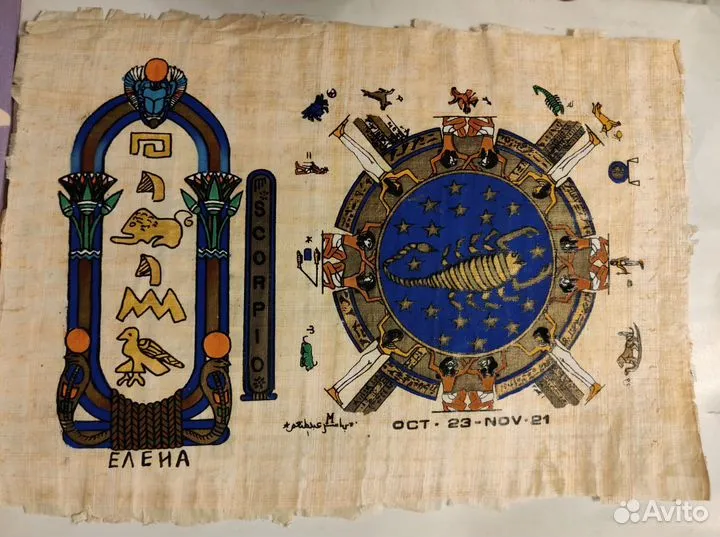 SCORPIO
ЕЛЕНА
OCT · 23 - NOV · 21
Avito